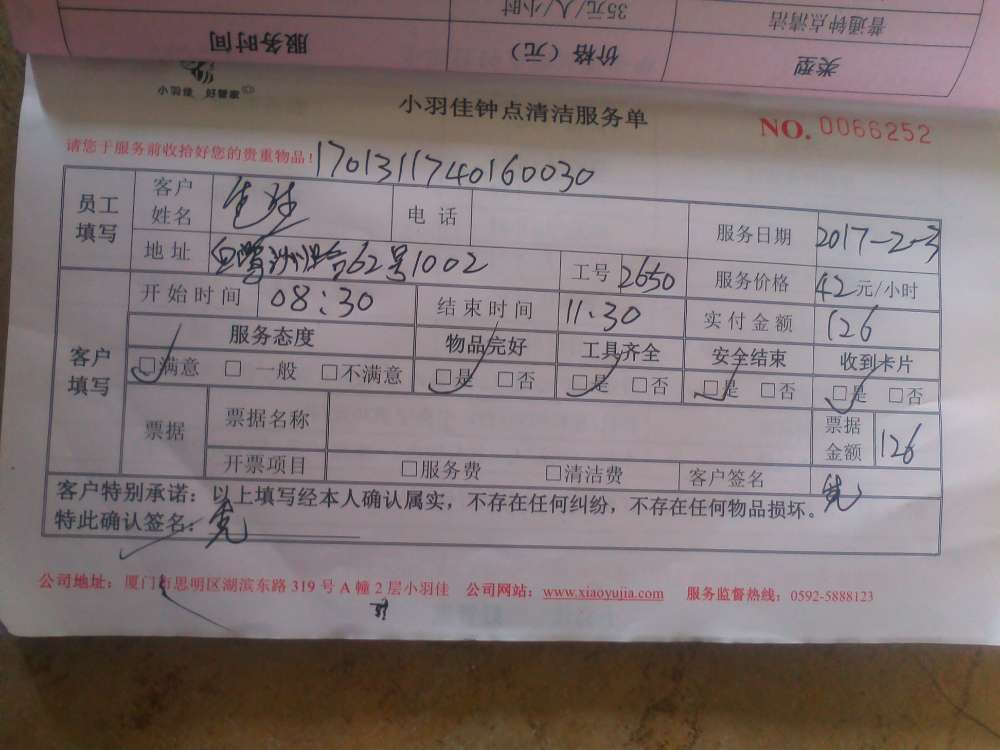 普通钟点清洁 35元/人/小时
类型 价格（元） 服务时间
小羽佳 好管家
小羽佳钟点清洁服务单
NO. 0066252
请您于服务前收拾好您的贵重物品！
1701311740160030
员工填写 客户姓名 电话 服务日期 2017-2-3
地址 白鹭洲 62号1002 工号 2650 服务价格 42元/小时
客户填写 开始时间 08:30 结束时间 11.30 实付金额 126
服务态度 物品完好 工具齐全 安全结束 收到卡片
☑满意 □一般 □不满意 ☑是 □否 ☑是 □否 ☑是 □否 ☑是 □否
票据 票据名称 票据金额 126
开票项目 □服务费 □清洁费 客户签名
客户特别承诺：以上填写经本人确认属实，不存在任何纠纷，不存在任何物品损坏。
特此确认签名：
公司地址：厦门市思明区湖滨东路 319 号 A 幢 2 层小羽佳 公司网站：www.xiaoyujia.com 服务监督热线：0592-5888123